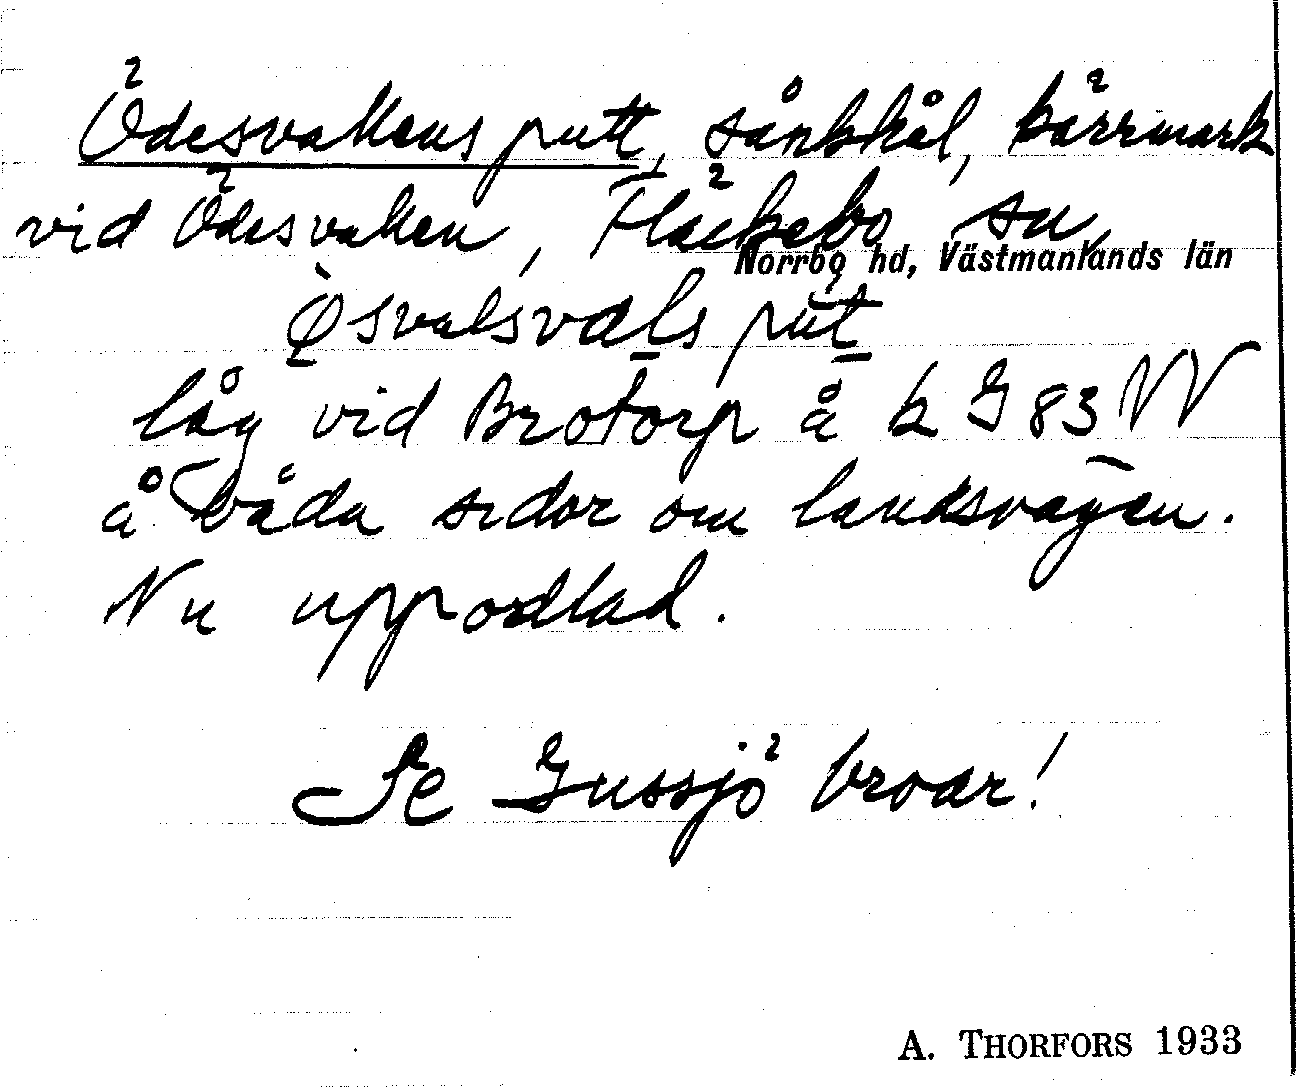 Ödesvallens putt, sånkhål, kärrmark
vid Ödesvallen, Fläckebo sn,
Norrbo hd, Västmanlands län
låg vid Brotorp å k G 83 NV
å båda sidor om landsvägen.
Nu uppodlad.
Se Gussjö broar!
A. THORFORS 1933